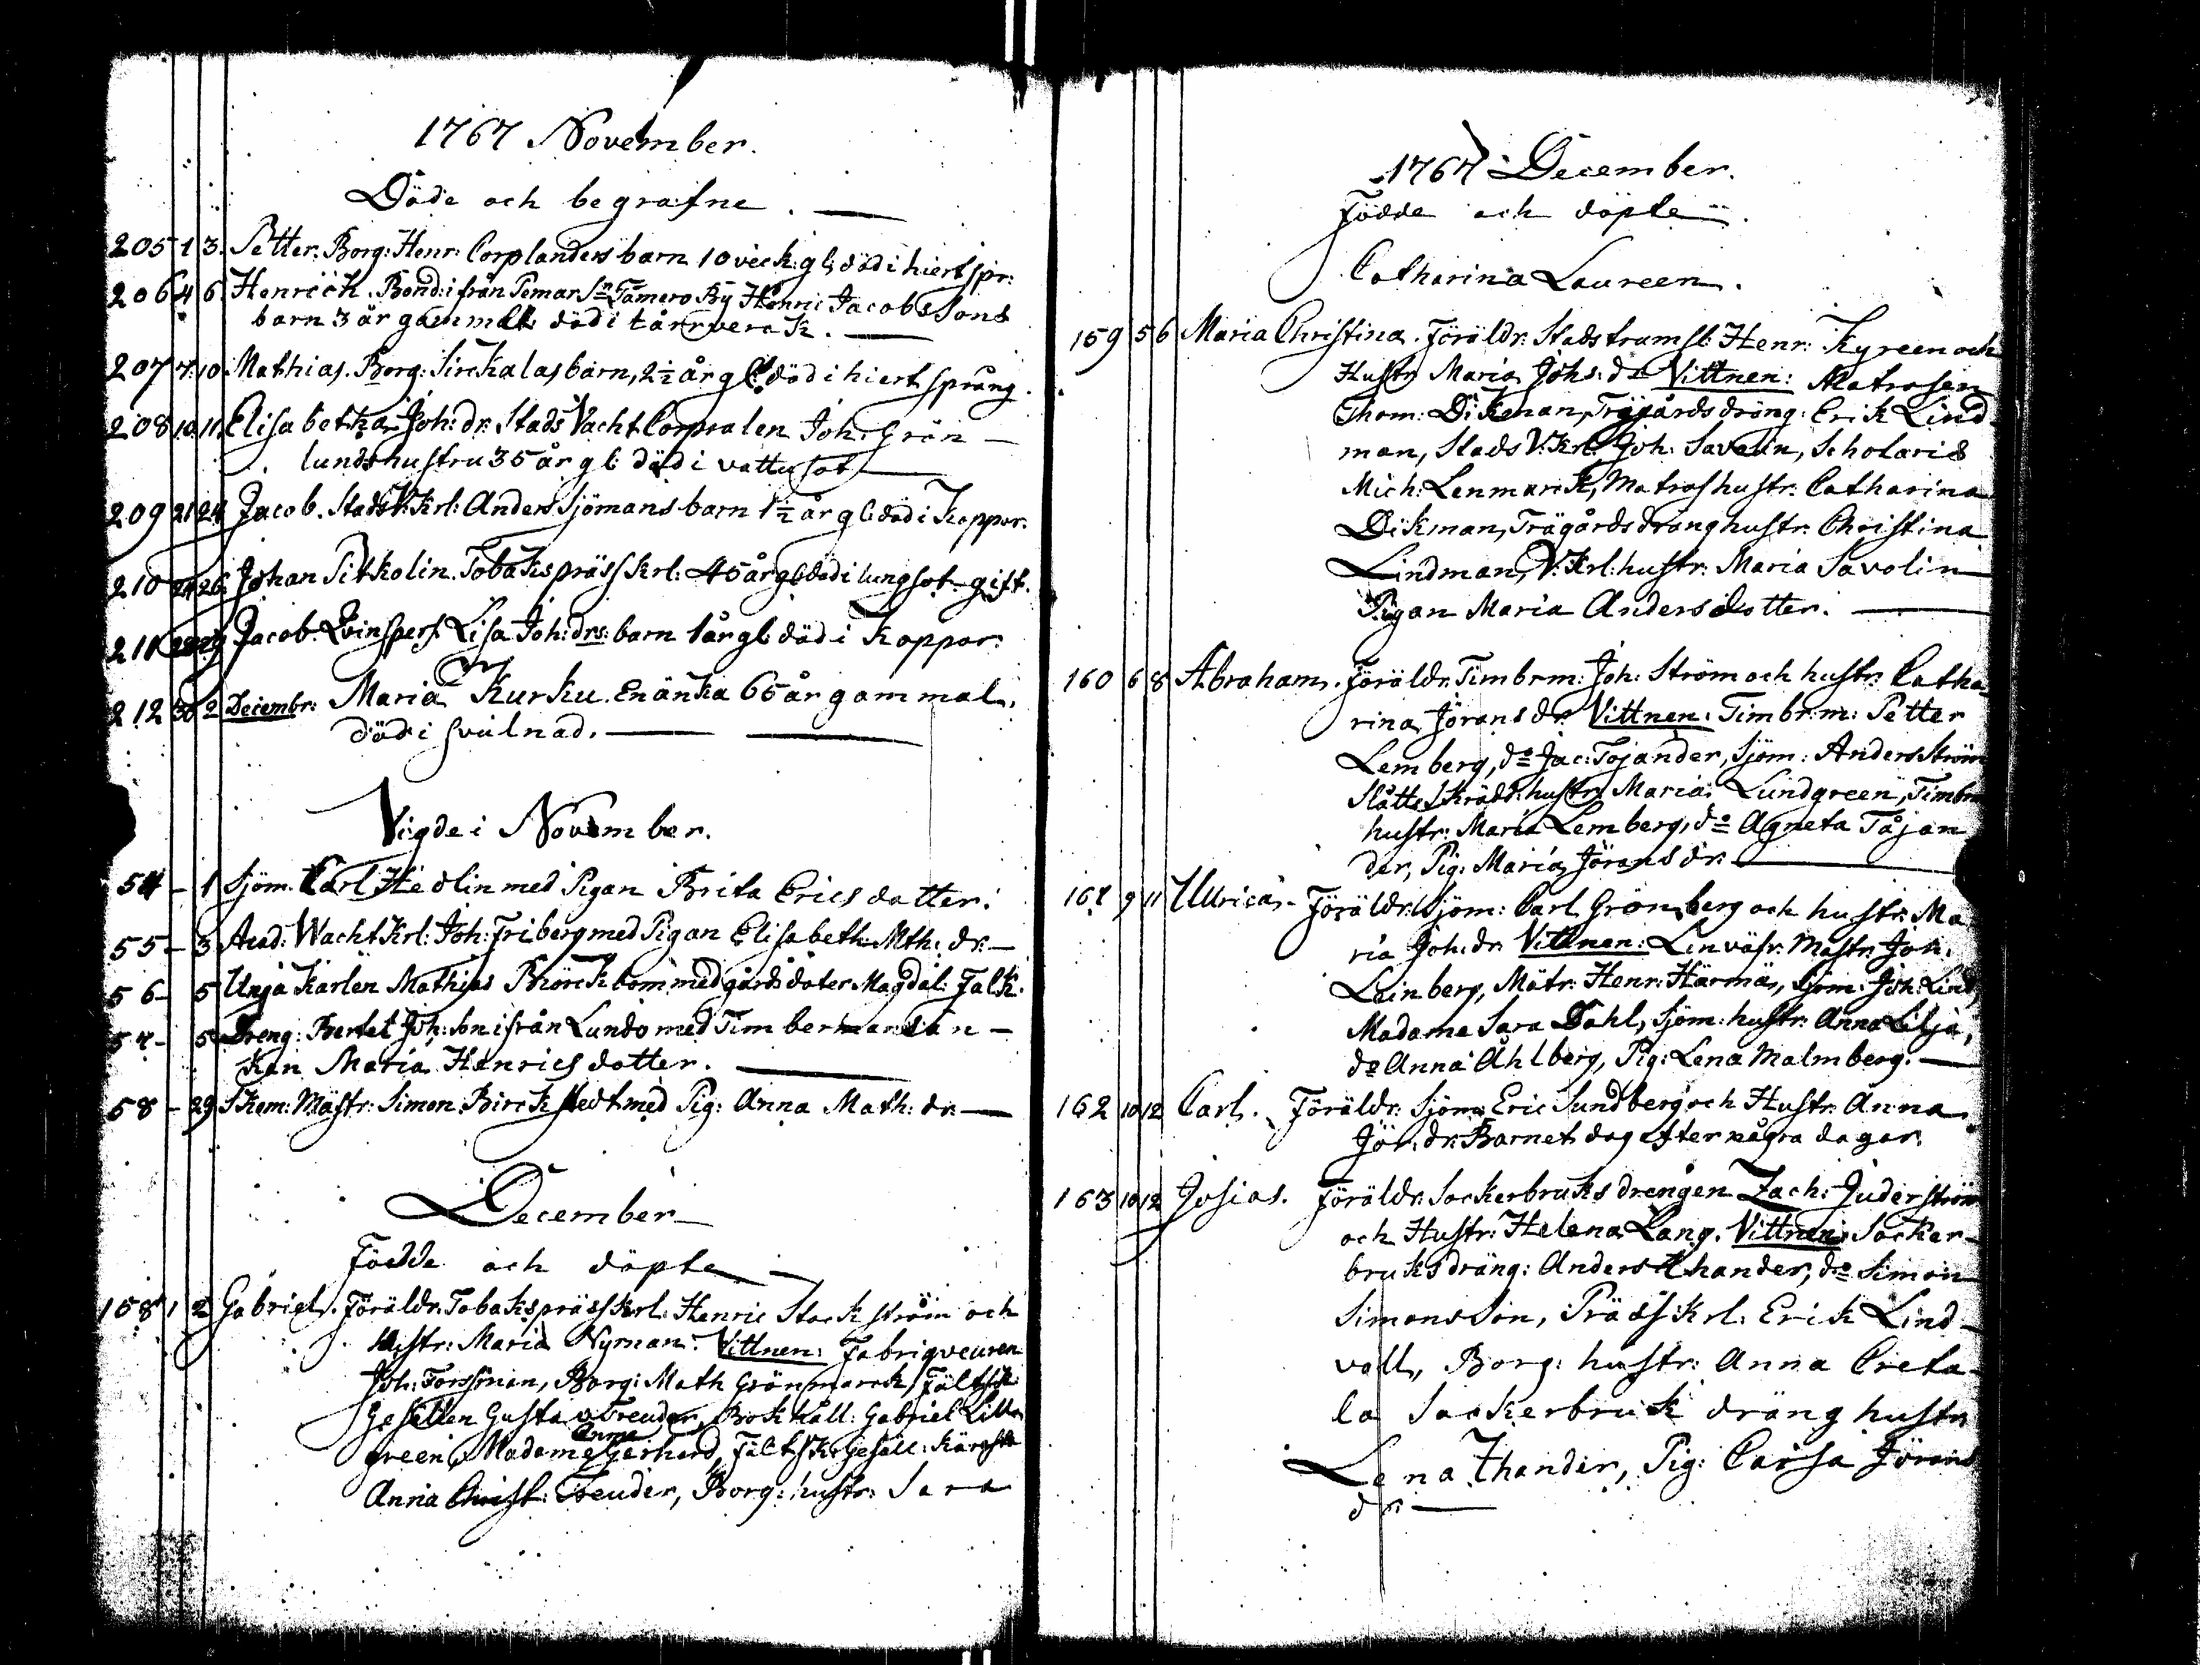 1767 November.
Döde och begrafne.
205 1 3. Petter. Borg: Henr: Corplanders barn 10 veck: gl: död i hiertspr:
206 4 6. Henrich. Bond: ifrån Pemar Sn Tamero By Henric Jacobssons
barn 3 år gammalt död i tårrverck.
207 7. 10. Mathias. Borg: Sirckalas barn, 2½ år gl: död i hiertsprång.
208 10. 11. Elisabetha Joh: dr: Stads Vacht Corporalen Joh: Grön-
lunds hustru 35 år gl: död i vattusot
209 21 24 Jacob. Stads V:Krl: Anders Sjömans barn 1½ år gl: död i Koppor.
210 24 26. Johan Pitkolin. Tobakspräss Krl: 45 år gl: död i lungsot gift.
211 28 29 Jacob. Qvinspers: Lisa Joh: drs: barn 1 år gl: död i Koppor:
212 30 2 Decembr: Maria Kurku. En änka 65 år gammal.
död i svulnad.
Vigde i November.
54 - 1 Sjöm. Carl Hedlin med Pigan Brita Erics dotter.
55 - 3 Acad: Wacht Krl: Joh: Friberg med Pigan Elisabeth Mth: dr:
56 - 5 Unga Karlen Mathias Biörckbom med gårds doter Magdal: Falk.
57 - 5 Dreng: Bertel Joh: Son ifrån Lundo med Timberman sän-
kan Maria Henrics dotter.
58 - 29 Skom: Mästr: Simon Birckstedt med Pig: Anna Math: dr:
December
Födde och döpte
158 1 2 Gabriel. Föräldr: Tobakspräss Krl: Henric Stockström och
Hustr: Maria Nyman. Vittnen: Fabriqveuren
Joh: Forssman, Borg: Math Grönmarck, Fältsk:
Gesellen Gustav Treuder, Bokhåll: Gabriel Lille
green, Madame Anna Gerhard, Fältsk: Gesäll: Käresta
Anna Christ: Treuder, Borg: hustr: Sara
1767 December.
Födde och döpte.
Catharina Laureen.
159 5 6 Maria Christina. Föräldr: Stads trumsl: Henr: Kyreen och
Hustr Maria Johs: dr Vittnen: Matrosen
Thom: Dikman, Trägårdsdräng: Erik Lind-
man, Stads V:Krl: Joh: Savolin, Scholaris
Mich: Lenmarck, Matros hustr: Catharina
Dikman, Trägårdsdräng hustr: Christina
Lindman, V:Krl: hustr: Maria Savolin
Pigan Maria Andersdotter.
160 6 8 Abraham. Föräldr: Timbrm: Joh: Ström och hustr: Catha
rina Jörans dr: Vittnen: Timbr:m: Petter
Lemberg, do Jac: Tojander, Sjöm: Anders Ström
Slåtts Skrädd: hustr: Maria Lundgreen, Timbr
hustr: Maria Lemberg, do Agneta Tåjan
der, Pig: Maria Jörans dr:
161 9 11 Ullrica. Föräldr: Sjöm: Carl Grönberg och hustr: Ma
ria Joh: dr: Vittnen: Linväfv: Mästr: Joh:
Leinberg, Mätr: Henr: Härmä, Sjöm: Joh: Lind,
Madame Sara Dahl, Sjöm: hustr: Anna Lilja,
do Anna Åhlberg, Pig: Lena Malmberg.
162 10 12 Carl. Föräldr: Sjöm: Eric Sundberg och Hustr: Anna
Jör: dr: Barnet dog efter några dagar.
163 10 12 Josias. Föräldr: Sockerbruks drängen Zach: Juderström
och Hustr: Helena Lang. Vittnen: Socker-
bruksdräng: Anders Thander, do Simon
Simonsson, Präss:Krl: Erik Lind-
vall, Borg: hustr: Anna Creta-
la Sockerbruk dräng hustr:
Lena Thander, Pig: Caisa Jörans
dr: